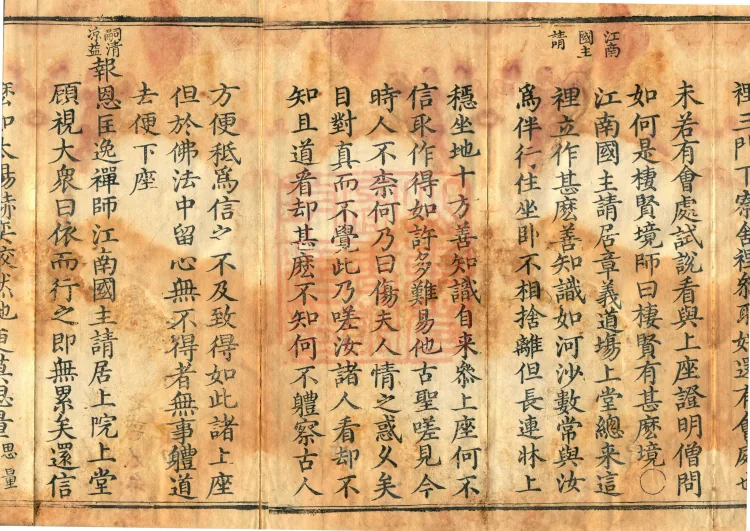 裡三門下寮舍裡好還有會處也
未若有會處試說看與上座證明僧問
如何是棲賢境師曰棲賢有甚麽境〇
江南
國主
請
江南國主請居章義道場上堂總來這
裡立作甚麽善知識如河沙數常與汝
爲伴行住坐卧不相捨離但長連牀上
穩坐地十方善知識自来叅上座何不
信取作得如許多難易他古聖嗟見今
時人不柰何乃曰傷夫人情之惑久矣
目對真而不覺此乃嗟汝諸人看却不
知且道看却甚麽不知何不軆察古人
方便秪爲信之不及致得如此諸上座
但於佛法中留心無不得者無事軆道
去便下座
嗣清
凉益
報恩匡逸禪師江南國主請居上院上堂
顧視大衆曰依而行之即無累矣還信
麽如太陽赫奕皎然地更莫思量思量